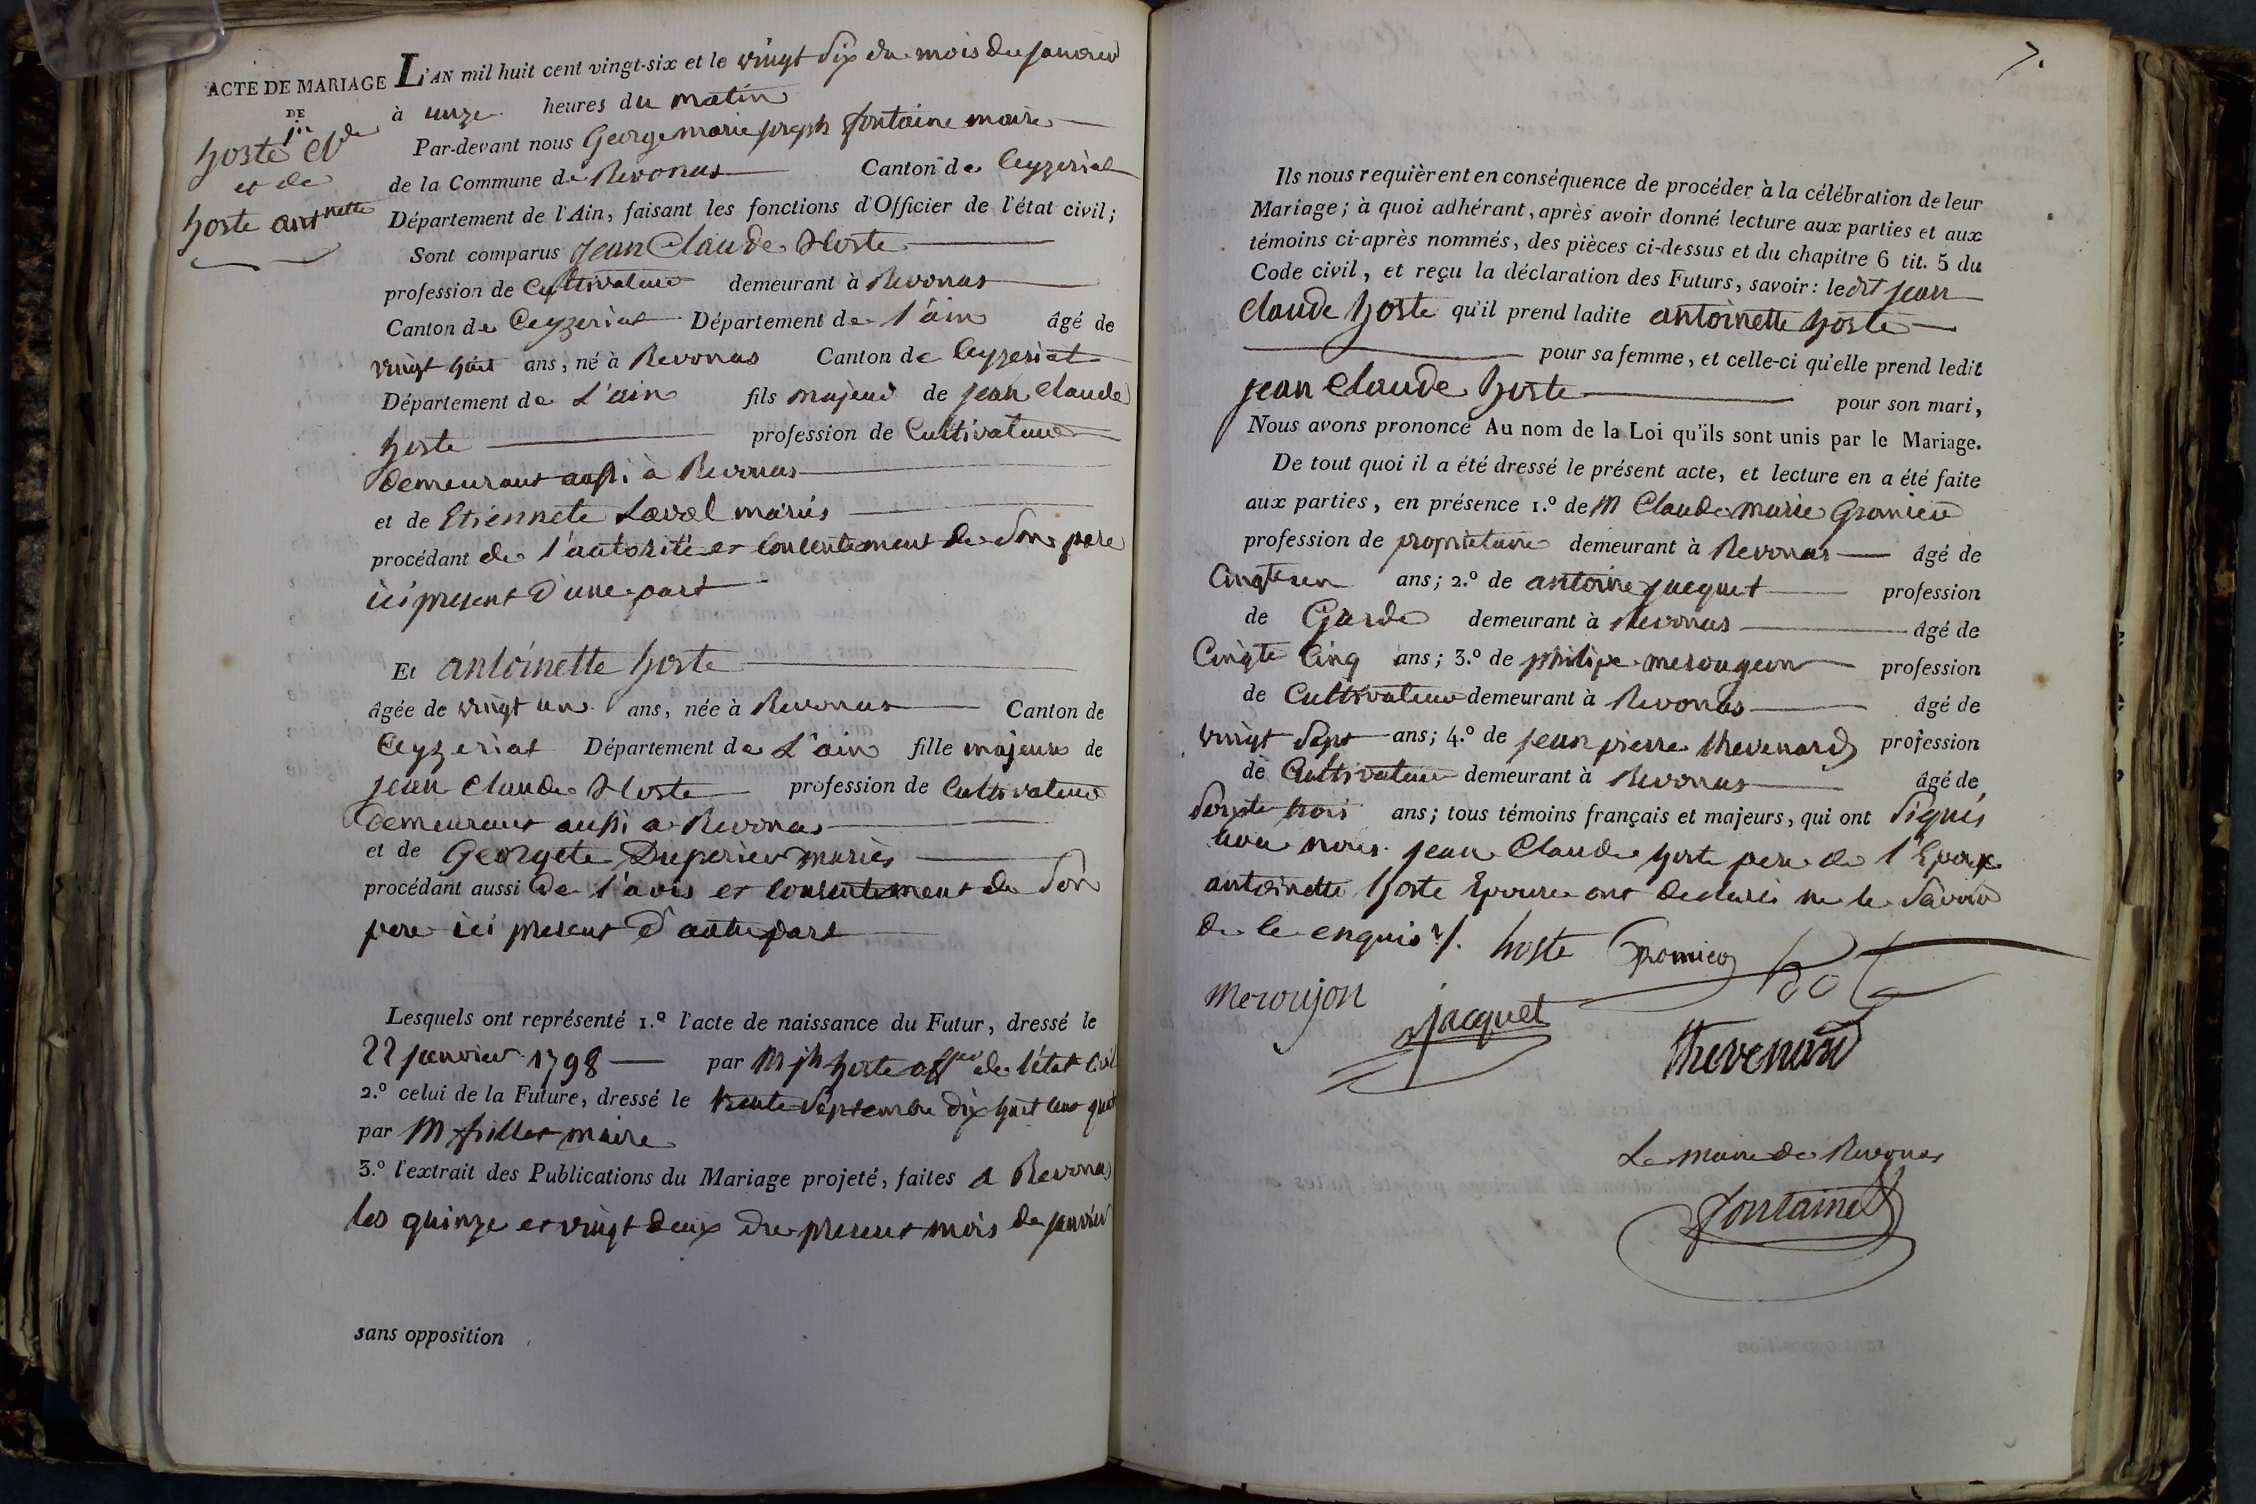 ACTE DE MARIAGE
DE
hoste Jn Cde
et de
hoste antnette
L'AN mil huit cent vingt-six et le vingt six du mois de janvier
à unze heures du matin
Par-devant nous George marie joseph fontaine maire
de la Commune de Revonas Canton de Ceyzeriat
Département de l'Ain, faisant les fonctions d'Officier de l'état civil;
Sont comparus Jean Claude Hoste
profession de Cultivateur demeurant à Revonas
Canton de Ceyzeriat Département de l'ain âgé de
vingt huit ans, né à Revonas Canton de Ceyzeriat
Département de L'ain fils majeur de jean Claude
hoste profession de Cultivateur
demeurant aussi à Revonas
et de Etiennete Laval mariés
procédant de l'autorité et consentement de son pere
ici present d'une part
Et antoinette hoste
âgée de vingt un ans, née à Revonas Canton de
Ceyzeriat Département de L'ain fille majeure de
jean Claude Hoste profession de Cultivateur
demeurant aussi a Revonas
et de Georgete Duperier mariés
procédant aussi de l'avis et consentement de son
pere ici present d'autre part
Lesquels ont représenté 1.º l'acte de naissance du Futur, dressé le
22 janvier 1798 par M jh hoste offer de l'état civil
2.º celui de la Future, dressé le trente septembre dix huit cent quat
par M hillet maire
3.º l'extrait des Publications du Mariage projeté, faites a Revonas
les quinze et vingt deux du present mois de janvier
sans opposition
7.
Ils nous requièrent en conséquence de procéder à la célébration de leur
Mariage; à quoi adhérant, après avoir donné lecture aux parties et aux
témoins ci-après nommés, des pièces ci-dessus et du chapitre 6 tit. 5 du
Code civil, et reçu la déclaration des Futurs, savoir: ledit jean
claude hoste qu'il prend ladite antoinette hoste
pour sa femme, et celle-ci qu'elle prend ledit
jean Claude hoste pour son mari,
Nous avons prononcé Au nom de la Loi qu'ils sont unis par le Mariage.
De tout quoi il a été dressé le présent acte, et lecture en a été faite
aux parties, en présence 1.º de M Claude marie Gromier
profession de propriétaire demeurant à Revonas âgé de
Cinqte un ans; 2.º de antoine jacquet profession
de Garde demeurant à Revonas âgé de
Cinqte Cinq ans; 3.º de philipe merougeon profession
de Cultivateur demeurant à Revonas âgé de
vingt sept ans; 4.º de jean pierre thevenard profession
de Cultivateur demeurant à Revonas âgé de
soixte trois ans; tous témoins français et majeurs, qui ont signés
avec nous. jean Claude hoste pere de l'Epoux
antoinette hoste Epouse ont declaré ne le savoir
de ce enquis ./.
hoste Gromier
meroujon jacquet
thevenard
Le maire de Revonas
fontaine